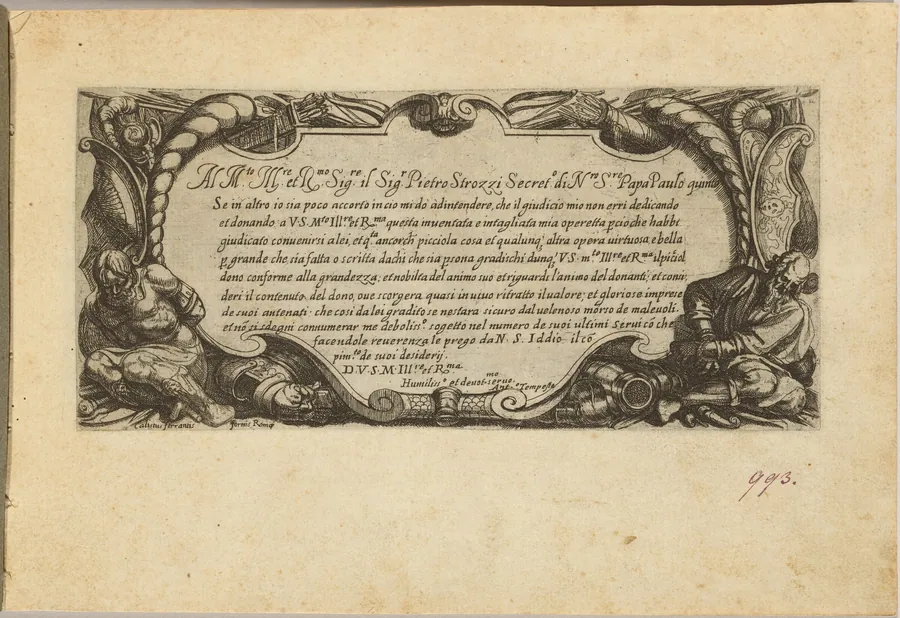 Al M.to Ill.re et R.mo Sig.re il Sig.r Pietro Strozzi Secret.o di N.ro S.re Papa Paulo quinto
Se in altro io sia poco accorto in cio mi dò adintendere, che il giudicio mio non erri dedicando
et donando a V.S. M.to Ill.re et R.ma questa inuentata e intagliata mia operetta pcioche habbi
giudicato conuenirsi a lei, et q.ta ancorch' picciola cosa et qualunq; altra opera virtuosa e bella
p grande che sia fatta o scritta da chi che sia psona gradischi dunq; V.S. m.to Ill.re et R.ma il picciol
dono conforme alla grandezza, et nobilta del animo suo et riguardi l'animo del donanti, et consi
deri il contenuto del dono, oue scorgera quasi in uiuo ritratto il ualore, et gloriose imprese
de suoi antenati che cosi da lei gradito se nestara sicuro dal uelenoso morso de maleuoli.
et nō si sdegni connumerar me debolis.o sogetto nel numero de suoi ultimi serui cō che
facendole reuerenza le prego da N. S. Iddio il cō
pim.to de suoi desiderij.
D.V.S.M. Ill.re et R.ma
Humiliss.o et deuot.mo seruo.
Ant.o Tempesta
Callistus ferrantis formis Romę
993.